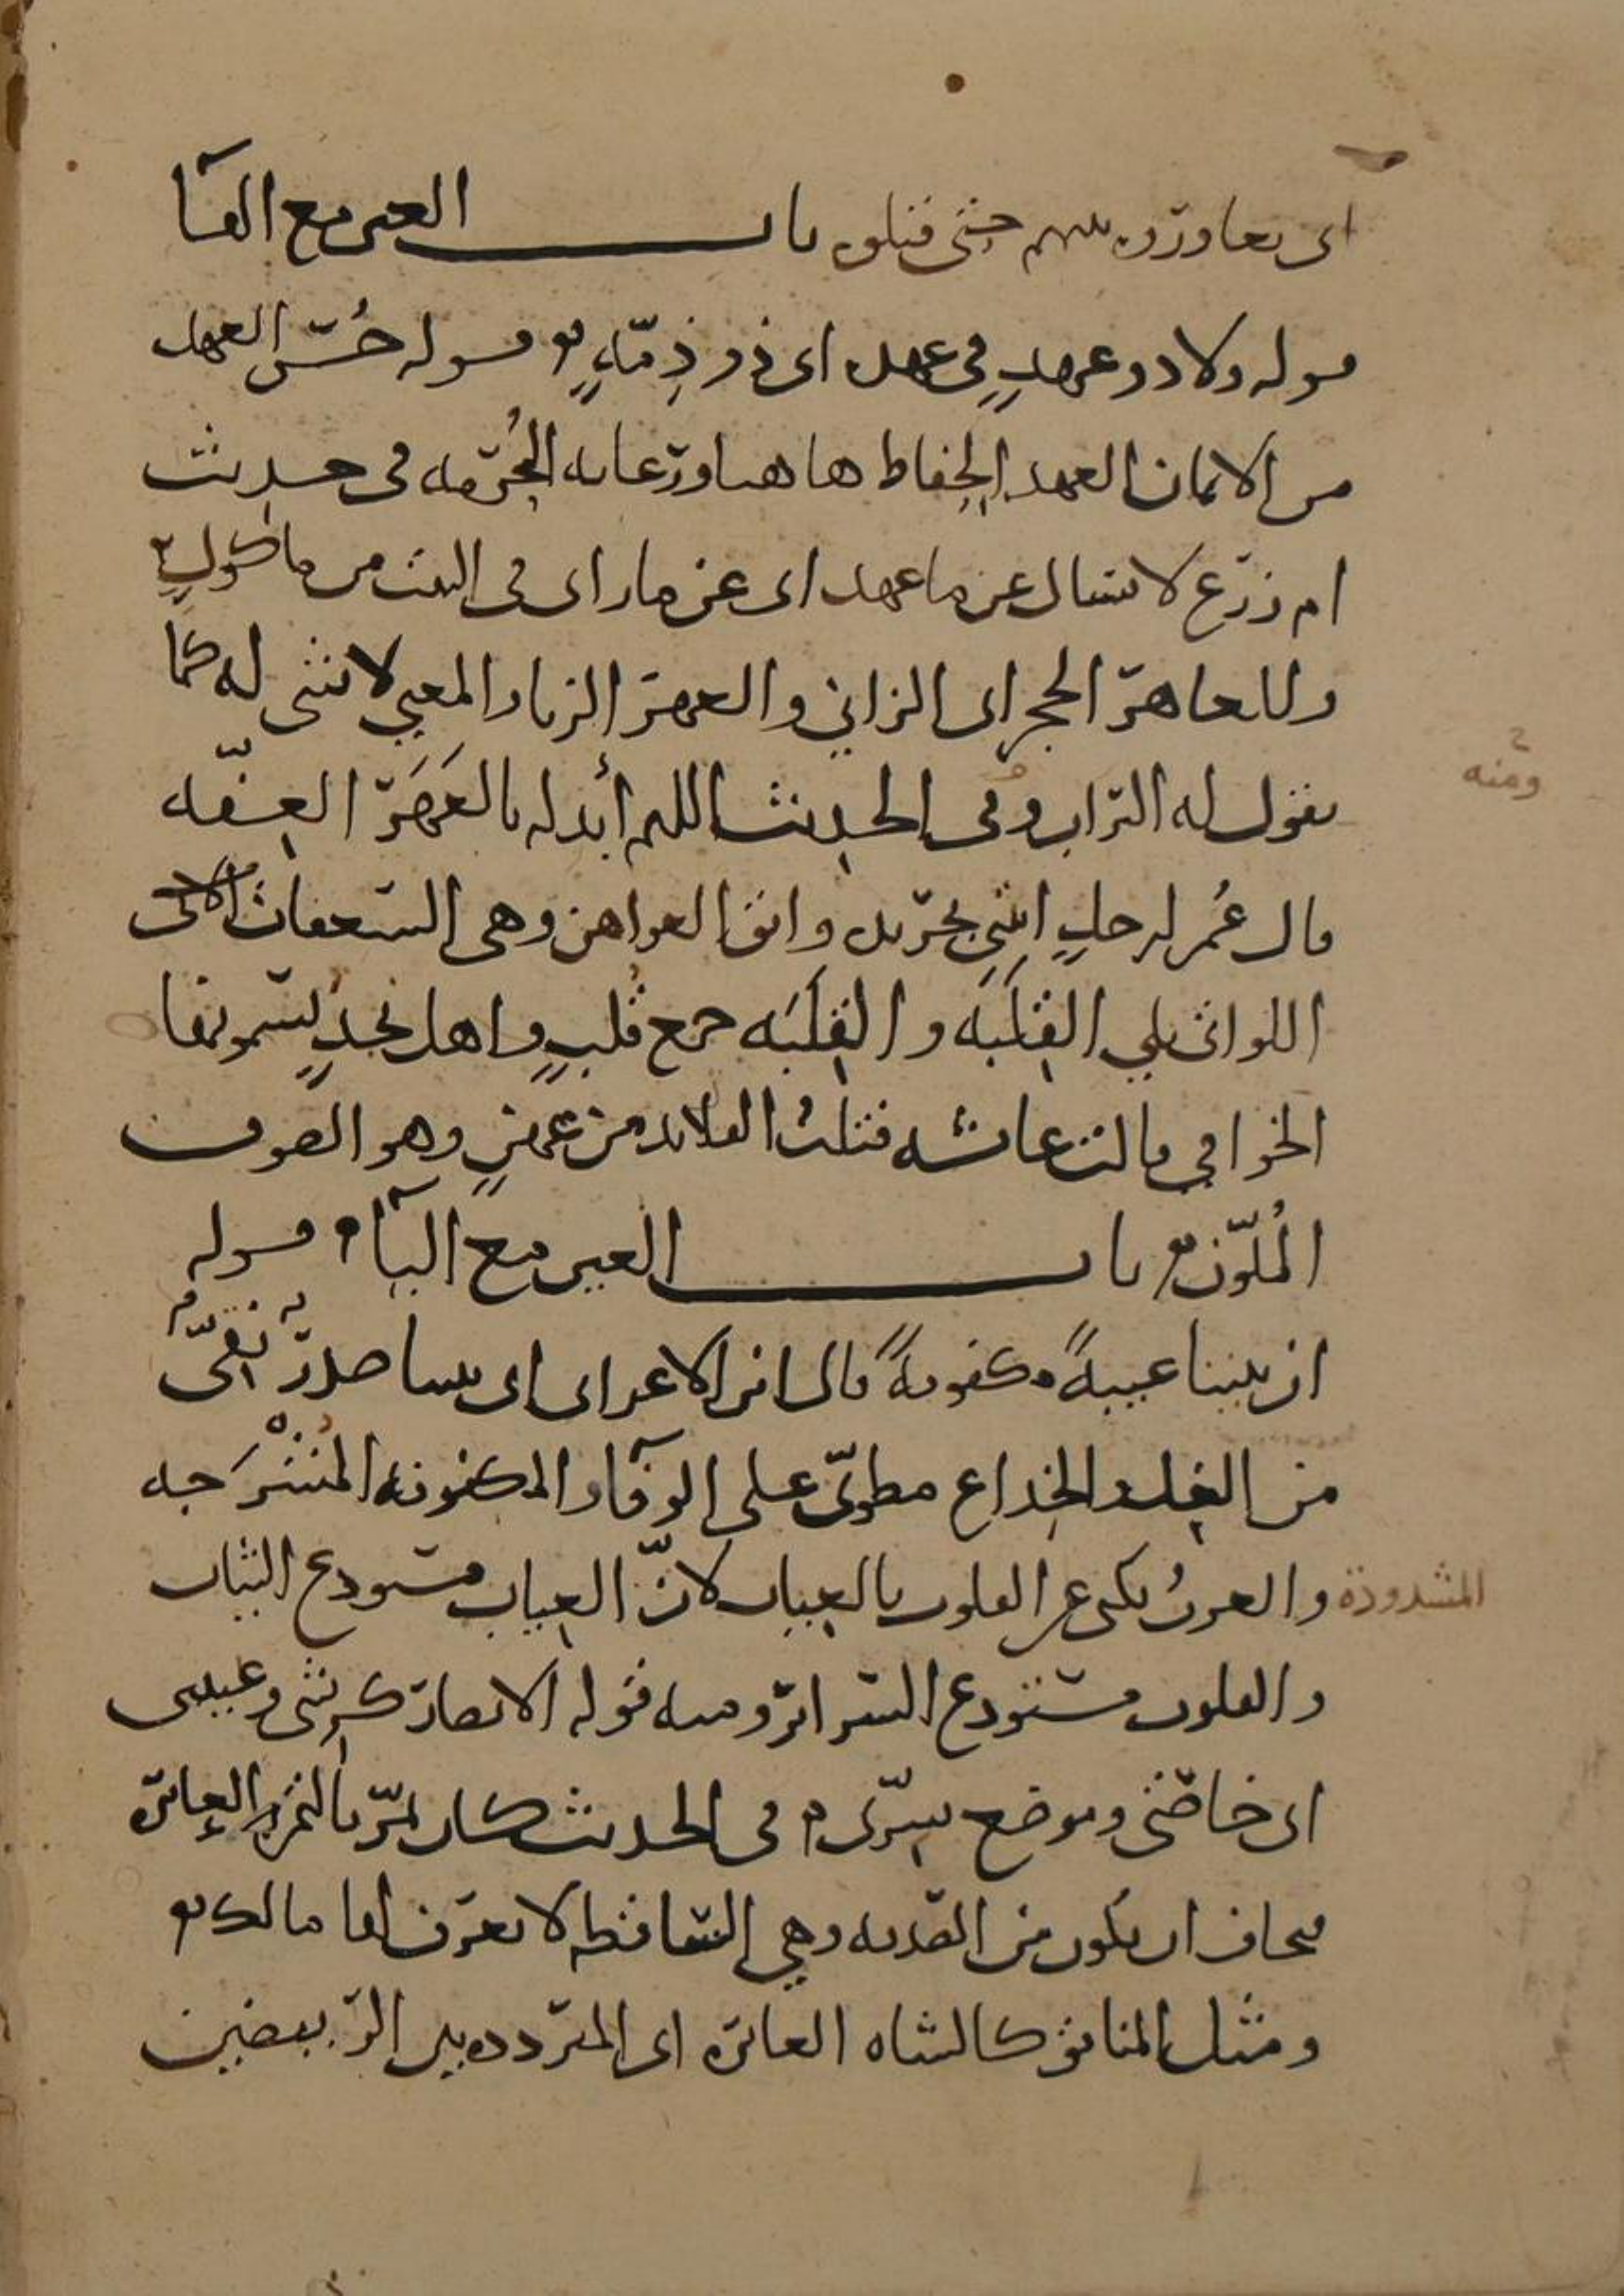 اى تعاوروه بينهم حتى قتلوه باب العين مع الهآء
قوله ولا ذو عهدٍ في عهده اى ذو ذِمّةٍ قوله حُسن العهد
من الايمان العهد الحِفاظ هاهنا ورعاية الحُرمه في حديث
ام زرع لا يسال عن ما عهد اى عن ما راى في البيت من ماكولٍ
وللعاهر الحجر اى الزاني والعهر الزنا والمعني لا شى له كما
يقول له التراب وفى الحديث اللهم أبدله بالعَهَر العِفّه
قال عُمر لرجلٍ ايتنِي بجريده واتق العواهن وهى السعفات
اللواتى يلي القِلَبَه والقِلَبَه جمع قُلبٍ واهل نجدٍ يُسمونها
الخوافي قالت عائشه فتلتُ القلائد من عِهنٍ وهو الصوف
المُلوّن باب العين مع اليآء قوله
ان بيننا عيبةً مكفوفةً قال ابن الاعرابى اى بيننا صدرٌ نقىٌّ
من الغِل والخِداع مطوىّ على الوفآء والمكفوفه المُشْرَجه
المشدودة والعربُ تكنى عن القلوب بالعِياب لانّ العِياب مستودع الثياب
والقلوب مستودع السرائر ومنه قوله الانصار كرِشى وعيبتى
اى خاصّتى وموضع سِرّى فى الحديث كان يمرّ بالتمره العائِره
فيخاف ان تكون من الصّدقه وهي السّاقطه لا يعرف لها مالك
ومثل المنافق كالشاه العائره اى المتردده بين الرّبيضين
ومنه